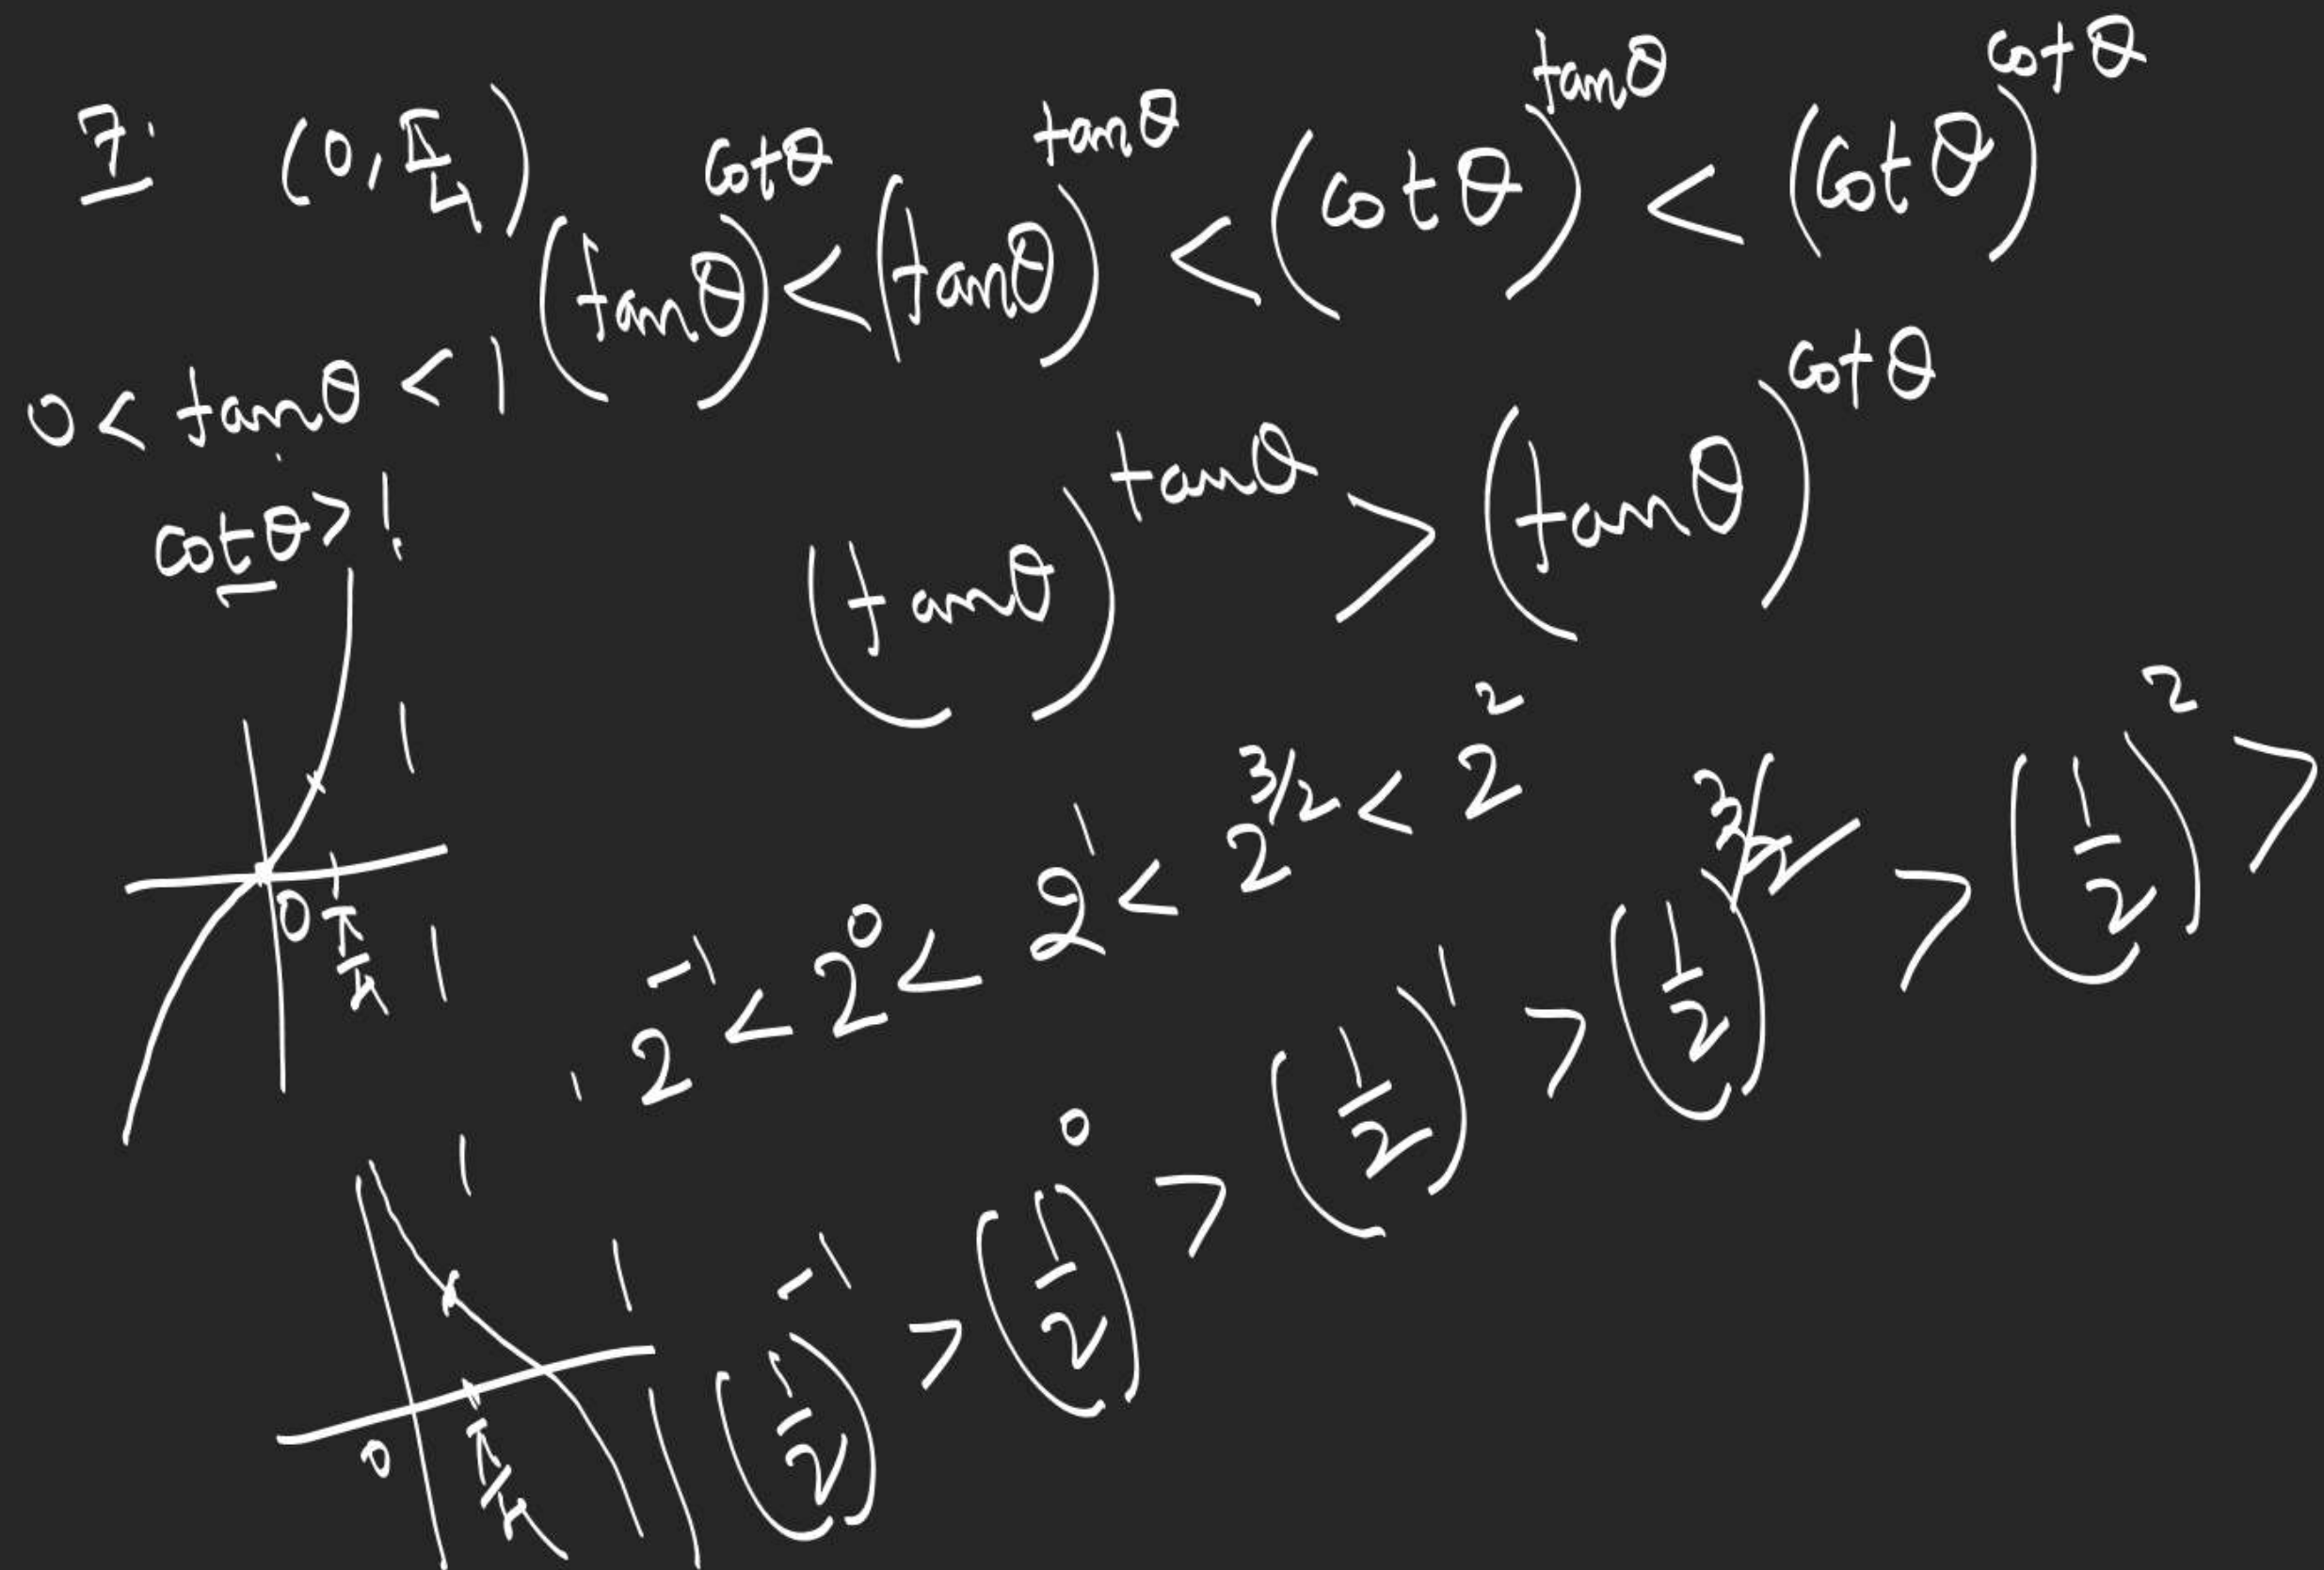 7. (0, π/4)
(tanθ)^cotθ < (tanθ)^tanθ < (cotθ)^tanθ < (cotθ)^cotθ
0 < tanθ < 1
cotθ > 1.
(tanθ)^tanθ > (tanθ)^cotθ
0 π/4
2^-1 < 2^0 < 2^1 < 2^3/2 < 2^2
0 π/4
(1/2)^-1 > (1/2)^0 > (1/2)^1 > (1/2)^3/2 > (1/2)^2 >